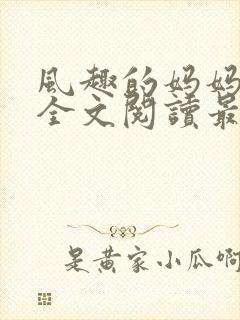 風趣的妈妈
全文閱讀最
是黄家小瓜啊